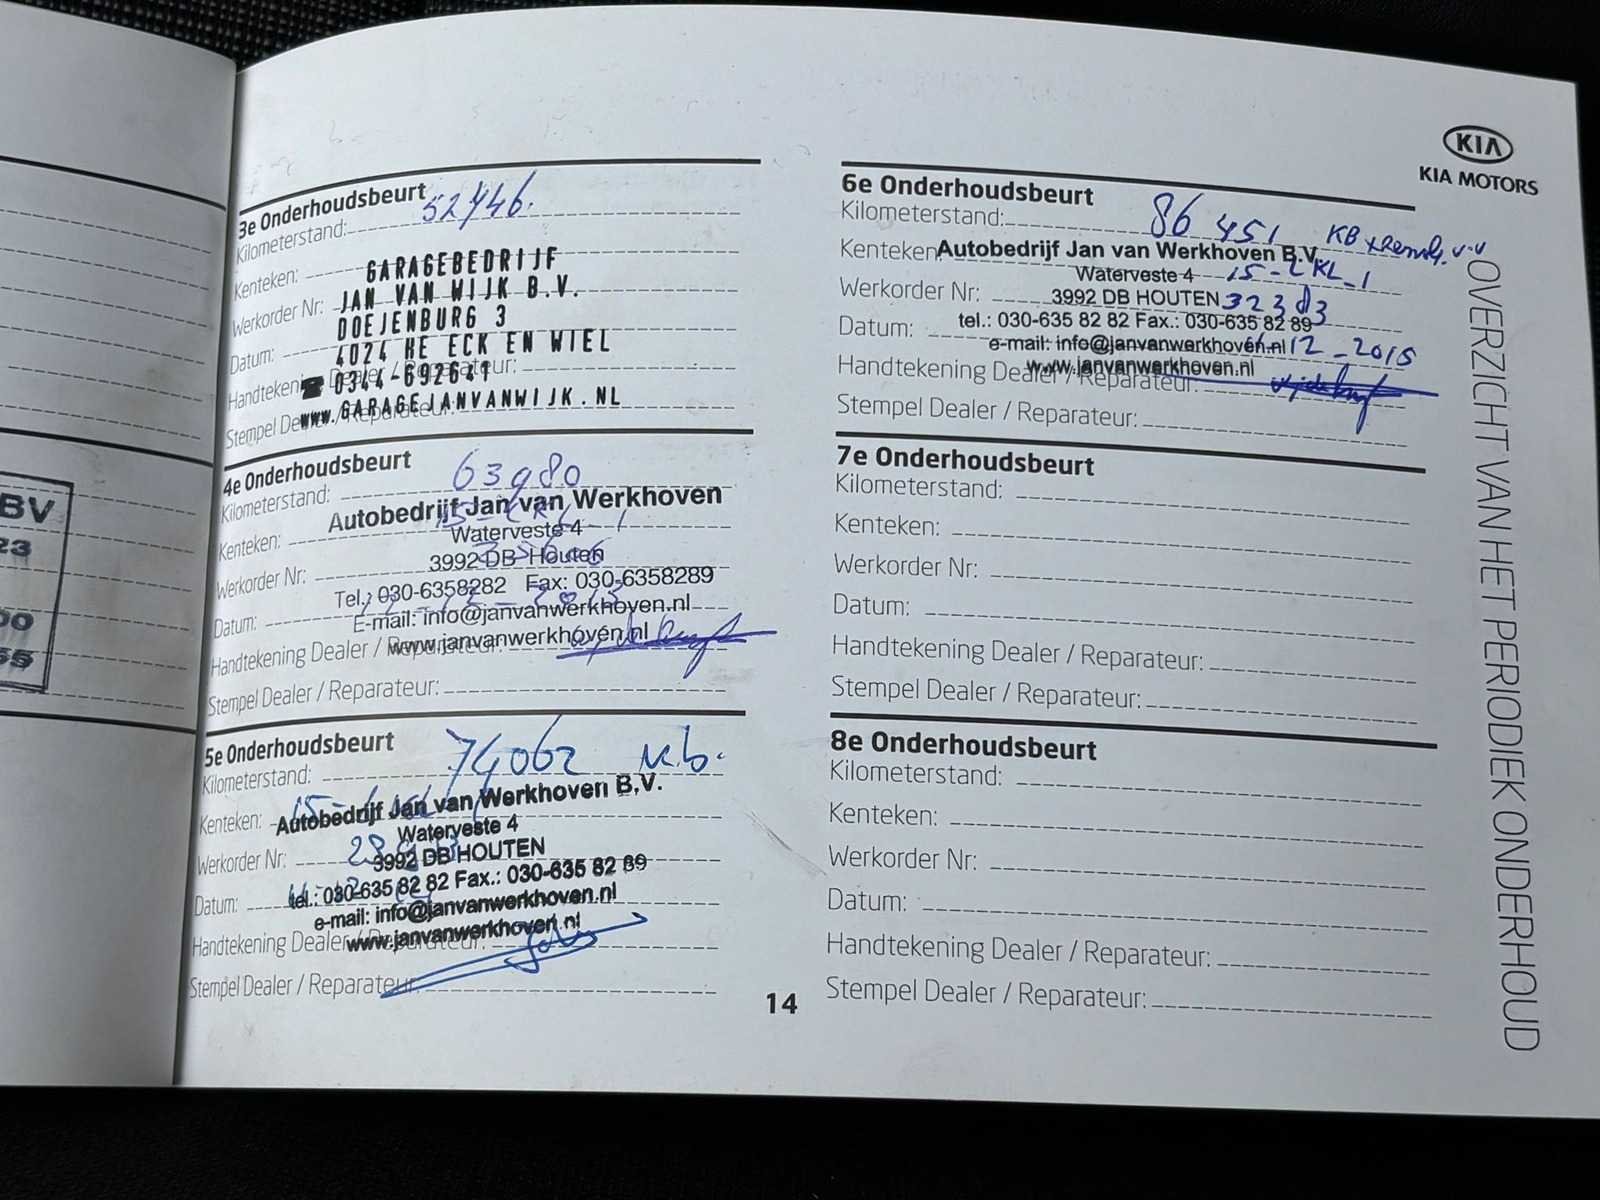 BV
23
00
55
3e Onderhoudsbeurt
Kilometerstand: 52446.
Kenteken:
GARAGEBEDRIJF
JAN VAN WIJK B.V.
Werkorder Nr:
DOEJENBURG 3
Datum:
4024 HE ECK EN WIEL
Handtekening Dealer / Reparateur:
0344-692641
Stempel Dealer / Reparateur:
www.GARAGEJANVANWIJK.NL
4e Onderhoudsbeurt
Kilometerstand: 63980
Autobedrijf Jan van Werkhoven
Kenteken:
Waterveste 4
3992 DB Houten
Werkorder Nr:
Tel.: 030-6358282 Fax: 030-6358289
Datum:
E-mail: info@janvanwerkhoven.nl
www.janvanwerkhoven.nl
Handtekening Dealer / Reparateur:
Stempel Dealer / Reparateur:
5e Onderhoudsbeurt
Kilometerstand: 74062
Kenteken:
Autobedrijf Jan van Werkhoven B.V.
Waterveste 4
Werkorder Nr:
3992 DB HOUTEN
tel.: 030-635 82 82 Fax.: 030-635 82 89
Datum:
e-mail: info@janvanwerkhoven.nl
www.janvanwerkhoven.nl
Handtekening Dealer / Reparateur:
Stempel Dealer / Reparateur:
14
KIA
KIA MOTORS
6e Onderhoudsbeurt
Kilometerstand: 86451 KB
Kenteken:
Autobedrijf Jan van Werkhoven B.V.
Waterveste 4 15-LKL-1
Werkorder Nr:
3992 DB HOUTEN 32383
tel.: 030-635 82 82 Fax.: 030-635 82 89
Datum:
e-mail: info@janvanwerkhoven.nl 12-2015
www.janvanwerkhoven.nl
Handtekening Dealer / Reparateur:
Stempel Dealer / Reparateur:
7e Onderhoudsbeurt
Kilometerstand:
Kenteken:
Werkorder Nr:
Datum:
Handtekening Dealer / Reparateur:
Stempel Dealer / Reparateur:
8e Onderhoudsbeurt
Kilometerstand:
Kenteken:
Werkorder Nr:
Datum:
Handtekening Dealer / Reparateur:
Stempel Dealer / Reparateur:
OVERZICHT VAN HET PERIODIEK ONDERHOUD